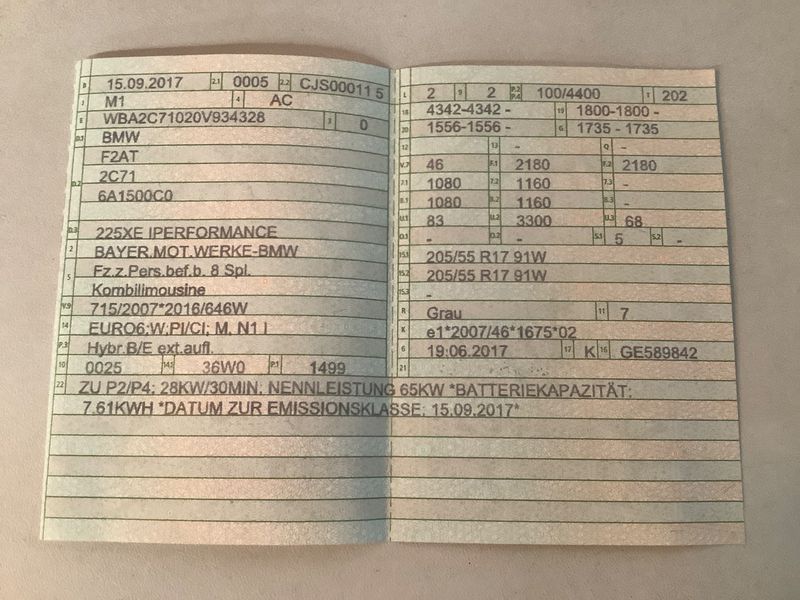 B 15.09.2017 2.1 0005 2.2 CJS00011 5
J M1 4 AC
E WBA2C71020V934328 3 0
D.1 BMW
F2AT
D.2 2C71
6A1500C0
D.3 225XE IPERFORMANCE
2 BAYER.MOT.WERKE-BMW
5 Fz.z.Pers.bef.b. 8 Spl.
Kombilimousine
V.9 715/2007*2016/646W
14 EURO6;W;PI/CI; M, N1 I
P.3 Hybr.B/E ext.aufl.
10 0025 14.1 36W0 P.1 1499
L 2 9 2 P.2 P.4 100/4400 T 202
18 4342-4342 - 19 1800-1800 -
20 1556-1556 - G 1735 - 1735
12 - 13 - Q -
V.7 46 F.1 2180 F.2 2180
7.1 1080 7.2 1160 7.3 -
8.1 1080 8.2 1160 8.3 -
U.1 83 U.2 3300 U.3 68
O.1 - O.2 - S.1 5 S.2 -
15.1 205/55 R17 91W
15.2 205/55 R17 91W
15.3 -
R Grau 11 7
K e1*2007/46*1675*02
6 19.06.2017 17 K 16 GE589842
21
22 ZU P2/P4: 28KW/30MIN; NENNLEISTUNG 65KW *BATTERIEKAPAZITÄT:
7.61KWH *DATUM ZUR EMISSIONSKLASSE: 15.09.2017*